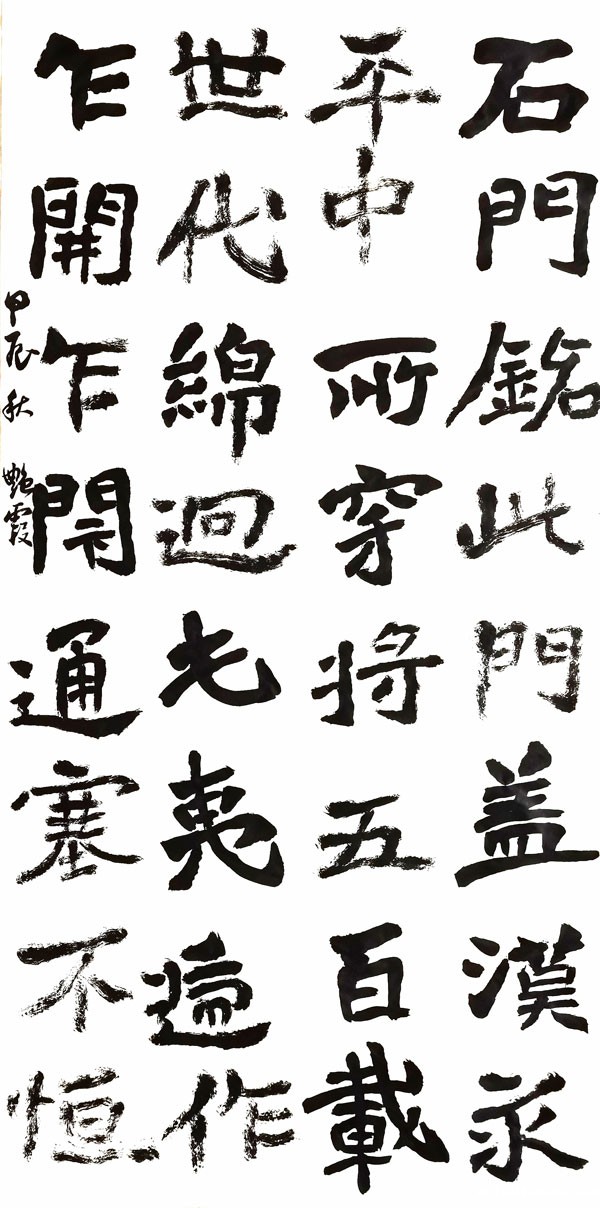 石門銘此門盖漢永
平中所穿将五百載
世代綿迴戎夷遞作
乍開乍閇通塞不恒
甲辰秋 艷霞